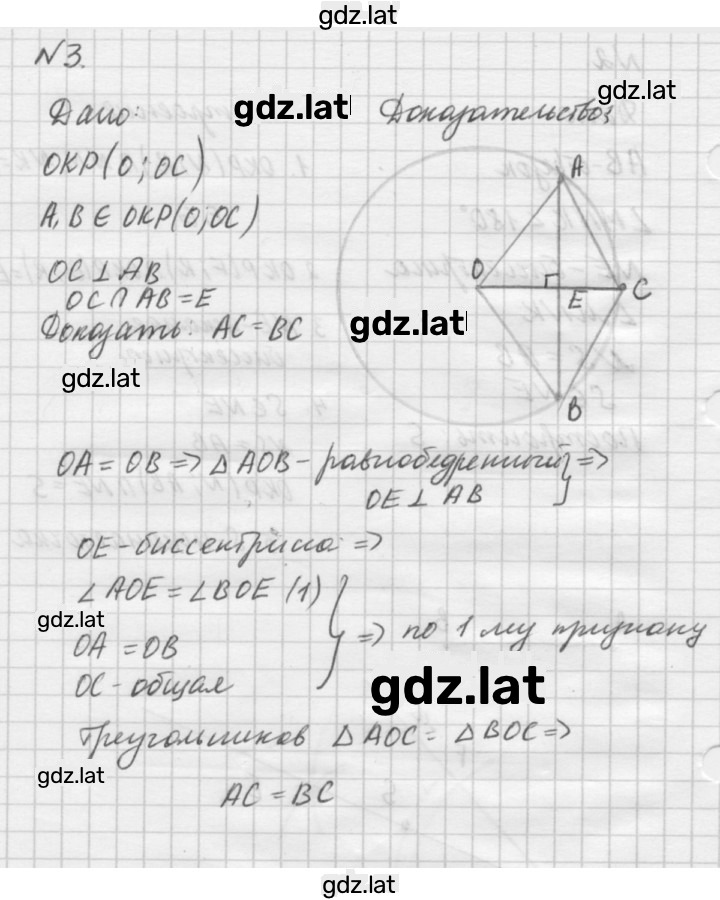 gdz.lat
N3.
gdz.lat
Дано: gdz.lat Доказательство:
ОКР(O; OC)
A, B ∈ ОКР(O; OC)
OC ⊥ AB
OC ∩ AB = E
Доказать: AC = BC
gdz.lat
gdz.lat
A
O
E
C
B
OA = OB => △AOB - равнобедренный } =>
OE ⊥ AB
OE - биссектриса =>
∠AOE = ∠BOE (1)
gdz.lat
OA = OB } => по 1 му признаку
OC - общая
gdz.lat
треугольников △AOC = △BOC =>
gdz.lat
AC = BC
gdz.lat